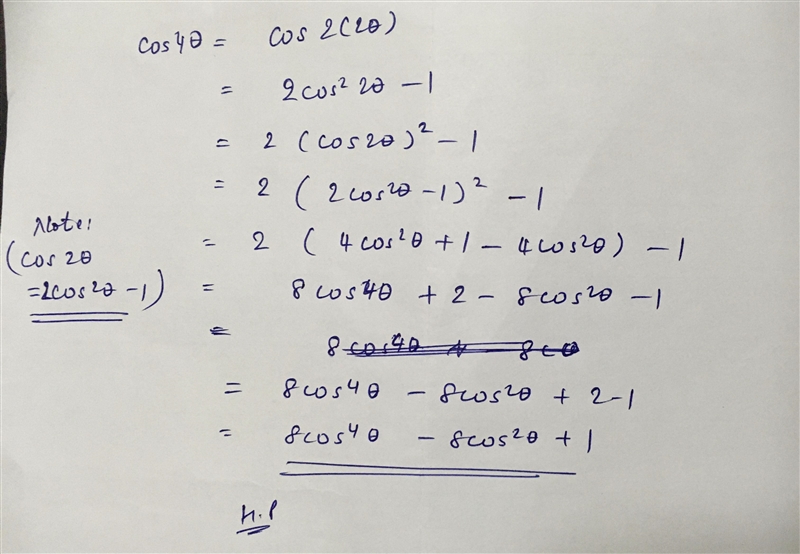 cos4θ = cos 2(2θ)
= 2cos² 2θ - 1
= 2 (cos2θ)² - 1
= 2 (2cos²θ - 1)² - 1
= 2 (4cos²θ + 1 - 4cos²θ) - 1
Note:
(cos 2θ
=2cos²θ - 1)
= 8cos⁴θ + 2 - 8cos²θ - 1
=
= 8cos⁴θ - 8cos²θ + 2-1
= 8cos⁴θ - 8cos²θ + 1
H.P